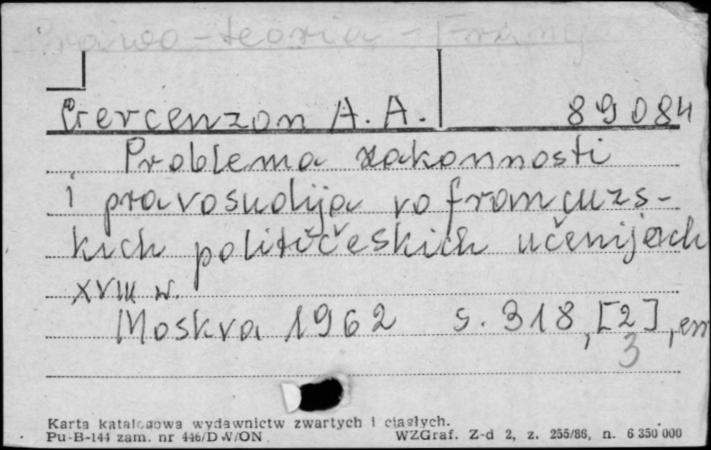 Prawo - teoria - Francja
Gercenzon A. A. 89084
Problema zakonnosti
i pravosudija vo francuzs-
kich političeskich učenijach
XVIII w.
Moskva 1962 s. 318, [2], err
3
Karta katalogowa wydawnictw zwartych i ciągłych.
Pu-B-144 zam. nr 446/D W/ON WZGraf. Z-d 2, z. 255/86, n. 6 350 000